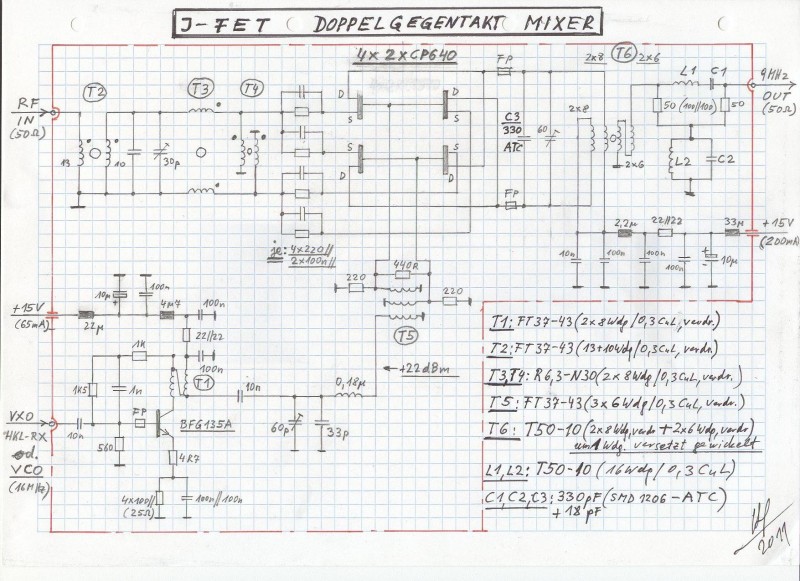 J-FET DOPPELGEGENTAKT MIXER
4x 2xCP640
T2
T3
T4
FP
2x8
T6
2x6
L1
C1
9MHz
OUT
(50Ω)
RF
IN
(50Ω)
D
D
S
S
S
S
D
D
C3
330
ATC
60
50 (100//100)
50
2x8
13
10
30p
2x6
L2
C2
FP
je: 4x220//
2x100n//
2,2µ
22//22
33µ
+15V
(200mA)
10n
100n
100n
100n
10µ
440R
220
220
T5
+15V
(65mA)
10µ
100n
22µ
4µ7
100n
22//22
1K
100n
T1
1K5
1n
10n
0,18µ
+22dBm
VXO
HKL-RX
od.
VCO
(16MHz)
10n
FP
BFG135A
560
4R7
60p
33p
4x100//
(25Ω)
100n//100n
T1: FT37-43 (2x8Wdg/0,3CuL, verdr.)
T2: FT37-43 (13+10Wdg/0,3CuL, verdr.)
T3,T4: R6,3-N30 (2x8Wdg/0,3CuL, verdr.)
T5: FT37-43 (3x6Wdg/0,3CuL, verdr.)
T6: T50-10 (2x8Wdg, verdr + 2x6Wdg, verdr)
um 1 Wdg. versetzt gewickelt
L1,L2: T50-10 (16Wdg/0,3CuL)
C1,C2,C3: 330pF (SMD 1206-ATC)
+18pF
2011